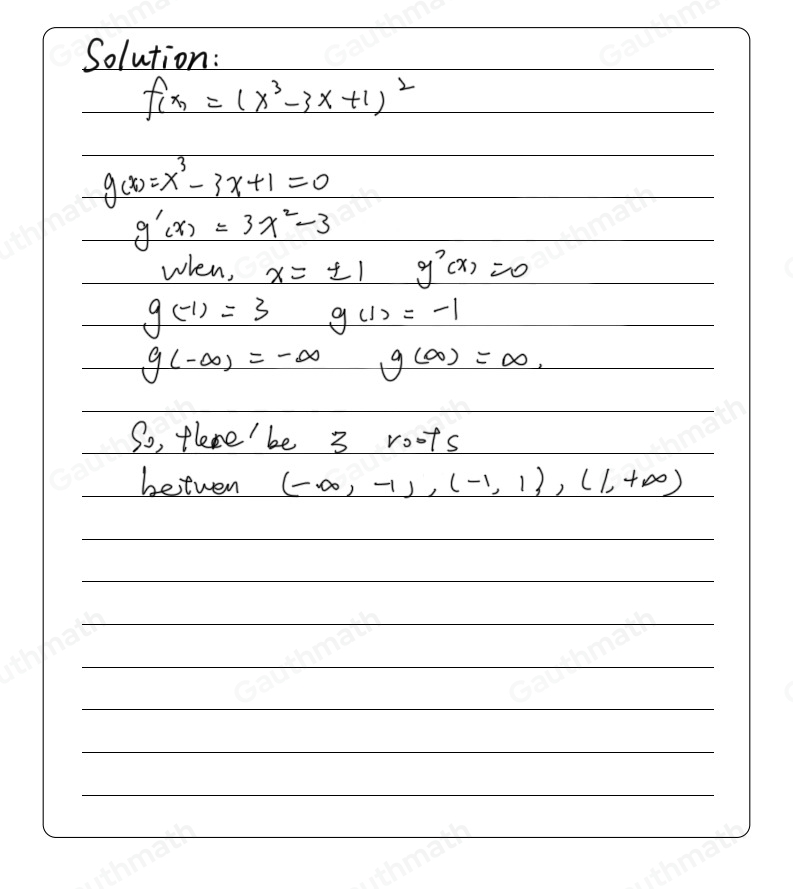 Solution:
f(x) = (x³-3x+1)²
g(x)=x³-3x+1=0
g'(x) = 3x²-3
when, x= ±1 g'(x)=0
g(-1) = 3 g(1) = -1
g(-∞) = -∞ g(∞) = ∞.
So, there' be 3 roots
between (-∞, -1), (-1, 1), (1, +∞)